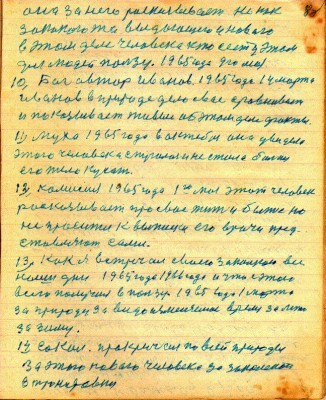 она за него рассказывает не как
за какого та
в этом деле человека кто есть в этом
для людей пользу. 1965 года 9го мая
10, Бог автор Иванов. 1965 года 14 марта
Иванов в природе дело свое сравнивает
и показывает живые об этом деле факты.
11, Муха 1965 года в октябре она увидела
этого человека ступила и не стала больше
его тело кусать.
12, Комиссия 1965 года 1го мая этот человек
рассказывает про свое жить и быть но
не просится к выписки его врачи пред-
ставляют сами.
13, Как я встречал своего закалкою все
наши дни 1965 года 1966 года и что с этого
всего получил в пользу. 1965 года 1 марта
за природу за видоизменение время за лето
за зиму.
14, Сокол. прокричал по всей природе
за этого нового человека за закаленного
в тренировки